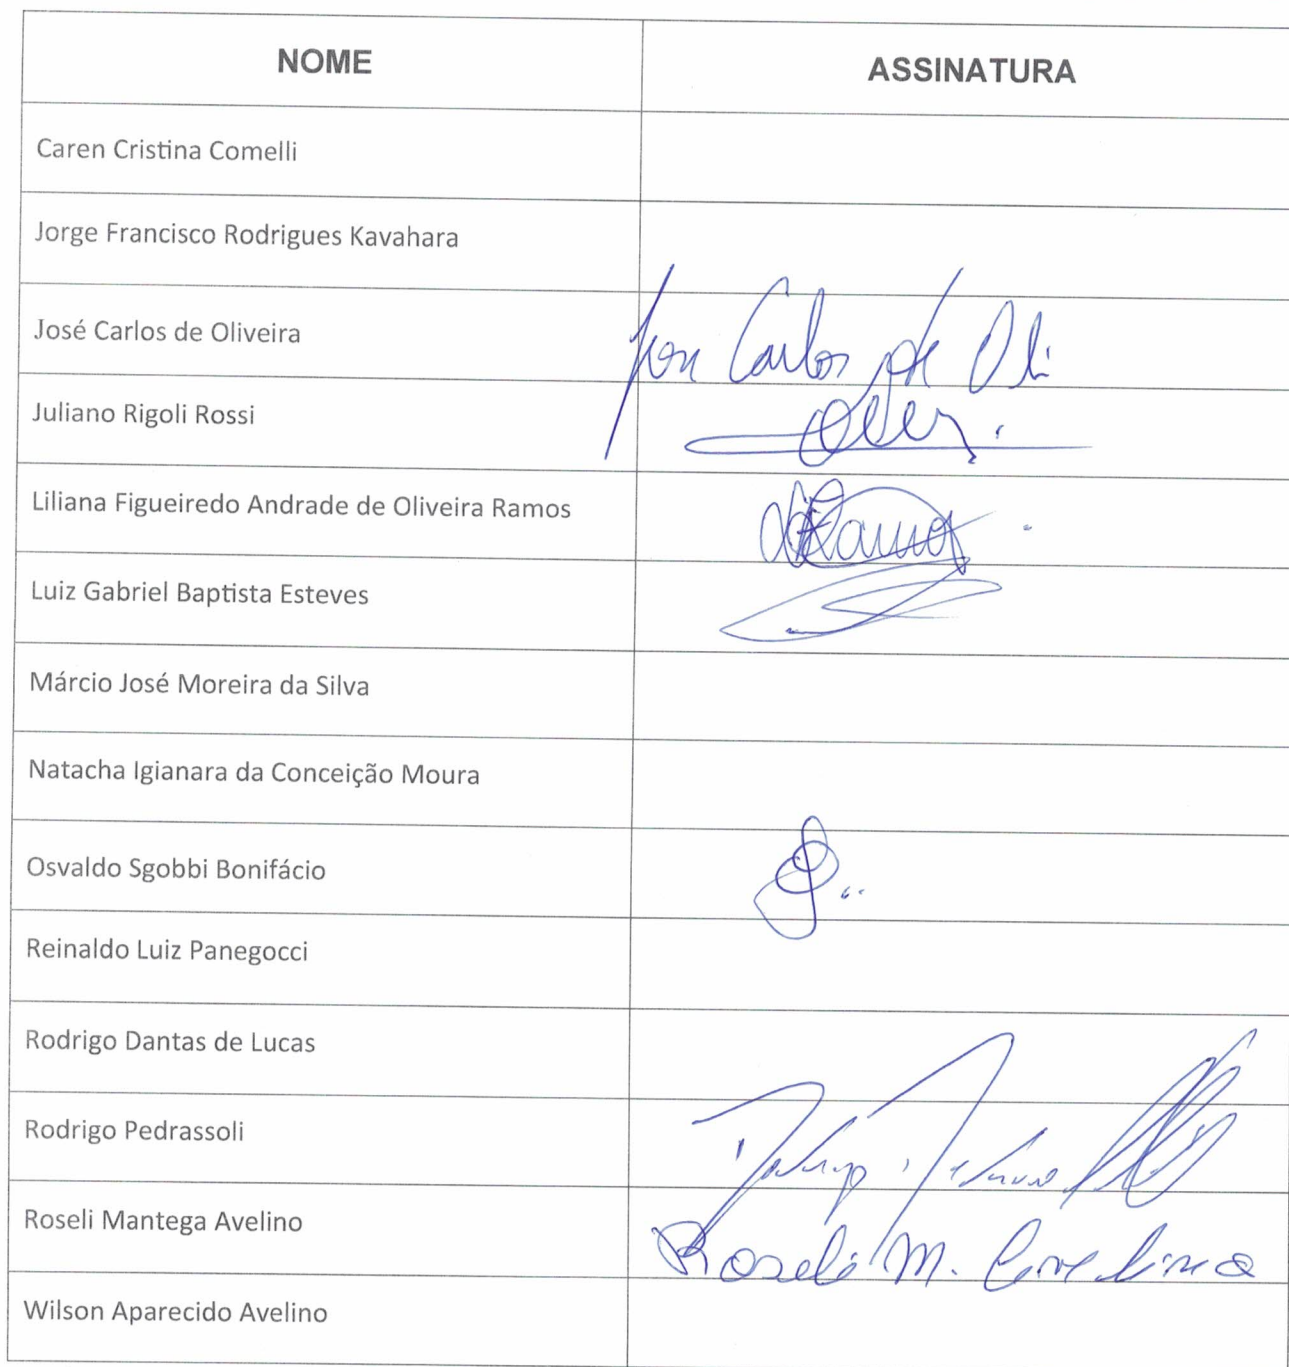 NOME ASSINATURA
Caren Cristina Comelli
Jorge Francisco Rodrigues Kavahara
José Carlos de Oliveira Jose Carlos de Oli
Juliano Rigoli Rossi
Liliana Figueiredo Andrade de Oliveira Ramos
Luiz Gabriel Baptista Esteves
Márcio José Moreira da Silva
Natacha Igianara da Conceição Moura
Osvaldo Sgobbi Bonifácio
Reinaldo Luiz Panegocci
Rodrigo Dantas de Lucas
Rodrigo Pedrassoli
Roseli Mantega Avelino Roseli M. Avelino
Wilson Aparecido Avelino